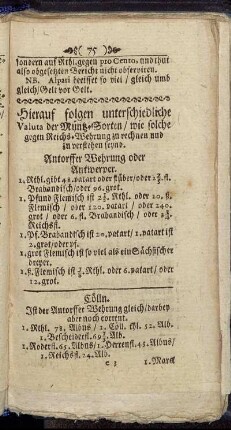 ( 75 )
sondern auff Rthl. gegen pro Cento, und thut
also obgesetzten Bericht nicht observiren.
NB. Alpari heisset so viel / gleich umb
gleich / Gelt vor Gelt.
Hierauf folgen unterschiedliche
Valuta der Müntz-Sorten / wie solche
gegen Reichs-Wehrung zu rechnen und
zu verstehen seynd.
Antorffer Wehrung oder
Antwerper.
1. Rthl. gibt 48. patart oder stüber / oder 2⅖. fl.
Brabandisch / oder 96. grot.
1. Pfund Flemisch ist 2½. Rthl. oder 10. fl.
Flemisch / oder 120. patart / oder 240.
grot / oder 6. fl. Brabandisch / oder
Reichsfl.
1. Pf. Brabandisch ist 20. patart / 1. patart ist
2. grot / oder pf.
1. grot Flemisch ist so viel als ein Sächsischer
dreyer.
1. fl. Flemisch ist Rthl. oder 6. patart / oder
12. grot.
Cölln.
Ist der Antorffer Wehrung gleich / darbey
aber noch corrent.
1. Rthl. 78. Albus / 1. Cöll. thl. 52. Alb.
1. Bescheiderfl. 69½. Alb.
1. Raderfl. 65. Albus / 1. Herrenfl. 45. Albus /
1. Reichsfl. 24. Alb.
1. Marck